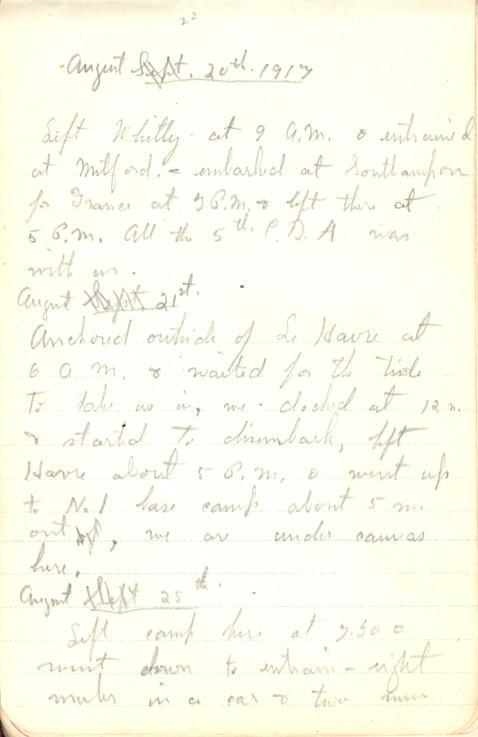 22
August Sept. 20th. 1917
Left Whitly at 9 A.M. & entrained
at Milford. - embarked at Southampton
for France at 3 P.M. & left there at
5 P.M. All the 5th. C. D. A was
with us.
August Sept. 21st.
Anchored outside of Le Havre at
6 a m. & waited for the tide
to take us in, we docked at 12 n.
& started to disembark, left
Havre about 5 P.M. & went up
to No. 1 base camp about 5 m.
out, we are under canvas
here.
August Sept 25th.
Left camp here at 7.30 &
went down to entrain - eight
mules in a car & two men